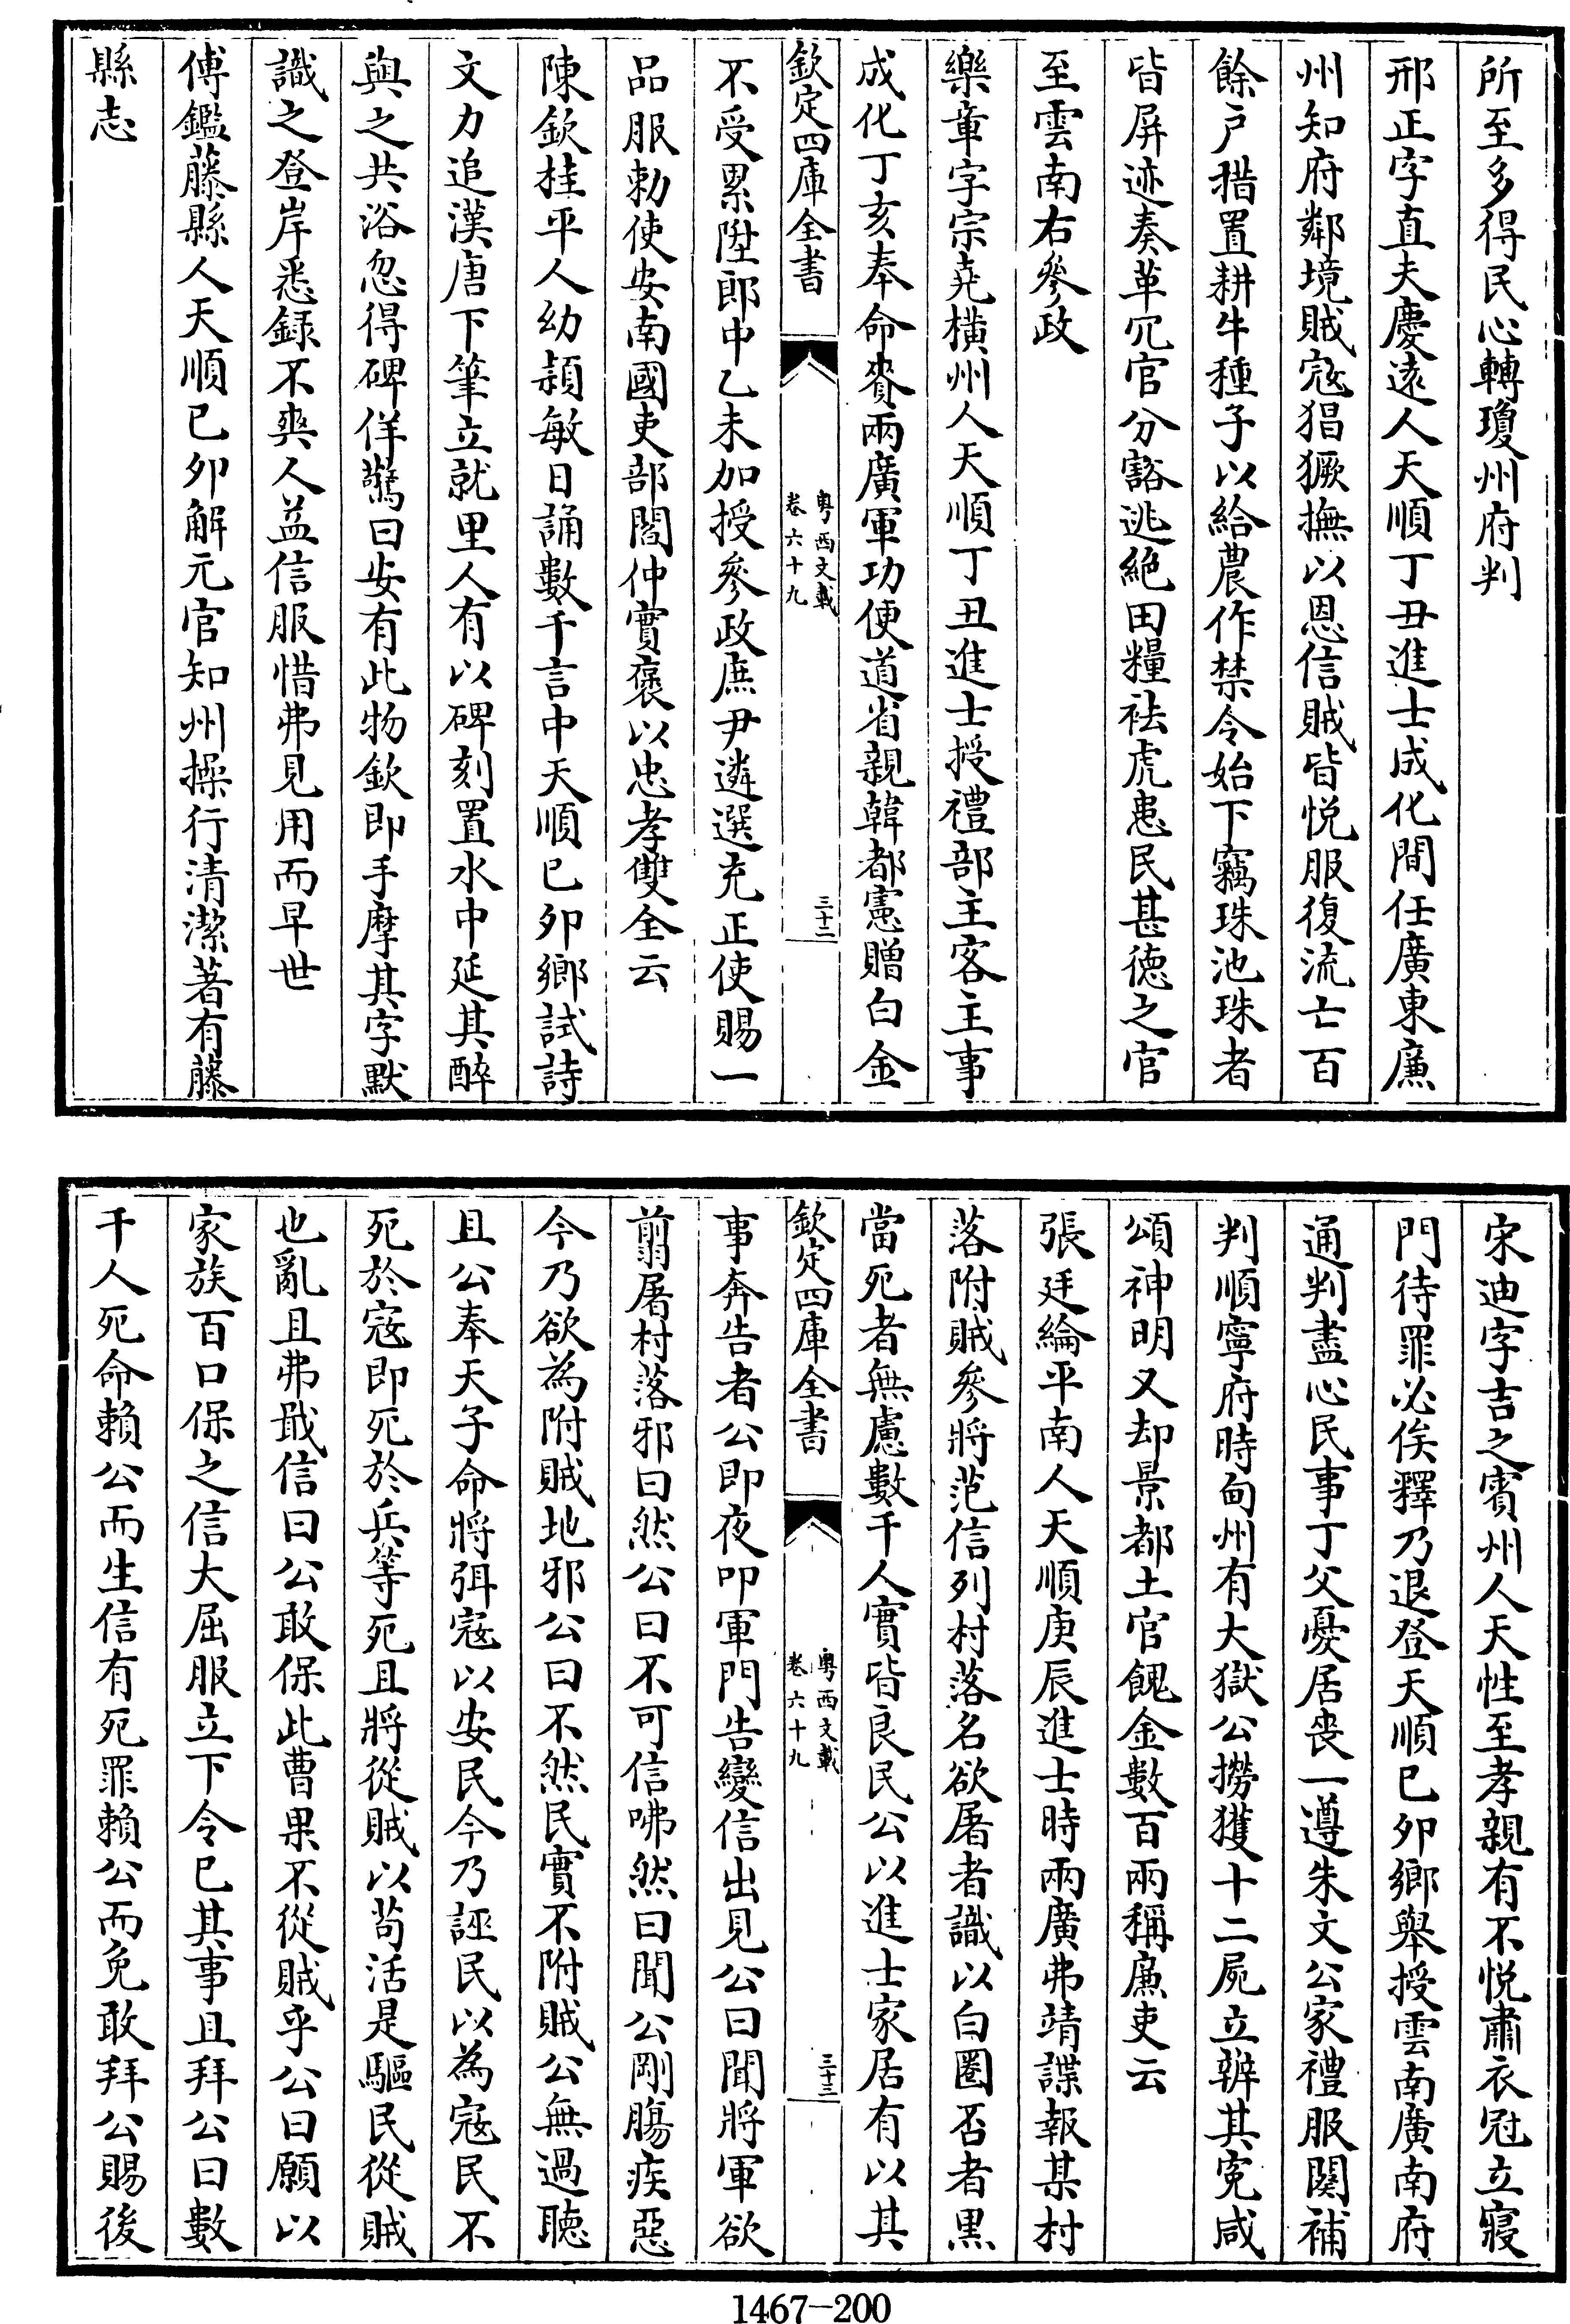 所至多得民心轉瓊州府判
邢正字直夫慶遠人天順丁丑進士成化間任廣東廉
州知府鄰境賊寇猖獗撫以恩信賊皆悅服復流亡百
餘戶措置耕牛種子以給農作禁令始下竊珠池珠者
皆屏迹奏革冗官分豁逃絕田糧祛虎患民甚德之官
至雲南右參政
樂章字宗堯橫州人天順丁丑進士授禮部主客主事
成化丁亥奉命賚兩廣軍功便道省親韓都憲贈白金
欽定四庫全書
粵西文載
卷六十九
三十二
不受累陞郎中乙未加授參政庶尹遴選充正使賜一
品服勅使安南國吏部閻仲實褒以忠孝雙全云
陳欽桂平人幼穎敏日誦數千言中天順已夘鄉試詩
文力追漢唐下筆立就里人有以碑刻置水中延其醉
與之共浴忽得碑佯驚曰安有此物欽即手摩其字默
識之登岸悉録不爽人益信服惜弗見用而早世
傅鑑藤縣人天順已夘解元官知州操行清潔著有藤
縣志
宋迪字吉之賓州人天性至孝親有不悅肅衣冠立寢
門待罪必俟釋乃退登天順已夘鄉舉授雲南廣南府
通判盡心民事丁父憂居喪一遵朱文公家禮服闋補
判順寧府時甸州有大獄公撈獲十二屍立辨其寃咸
頌神明又却景都土官餽金數百兩稱廉吏云
張廷綸平南人天順庚辰進士時兩廣弗靖諜報某村
落附賊參將范信列村落名欲屠者識以白圈否者黒
當死者無慮數千人實皆良民公以進士家居有以其
欽定四庫全書
粵西文載
卷六十九
三十三
事奔告者公即夜叩軍門告變信出見公曰聞將軍欲
翦屠村落邪曰然公曰不可信咈然曰聞公剛腸疾惡
今乃欲為附賊地邪公曰不然民實不附賊公無過聽
且公奉天子命將弭寇以安民今乃誣民以為寇民不
死於寇即死於兵等死且將從賊以茍活是驅民從賊
也亂且弗戢信曰公敢保此曹果不從賊乎公曰願以
家族百口保之信大屈服立下令已其事且拜公曰數
千人死命賴公而生信有死罪賴公而免敢拜公賜後
1467-200